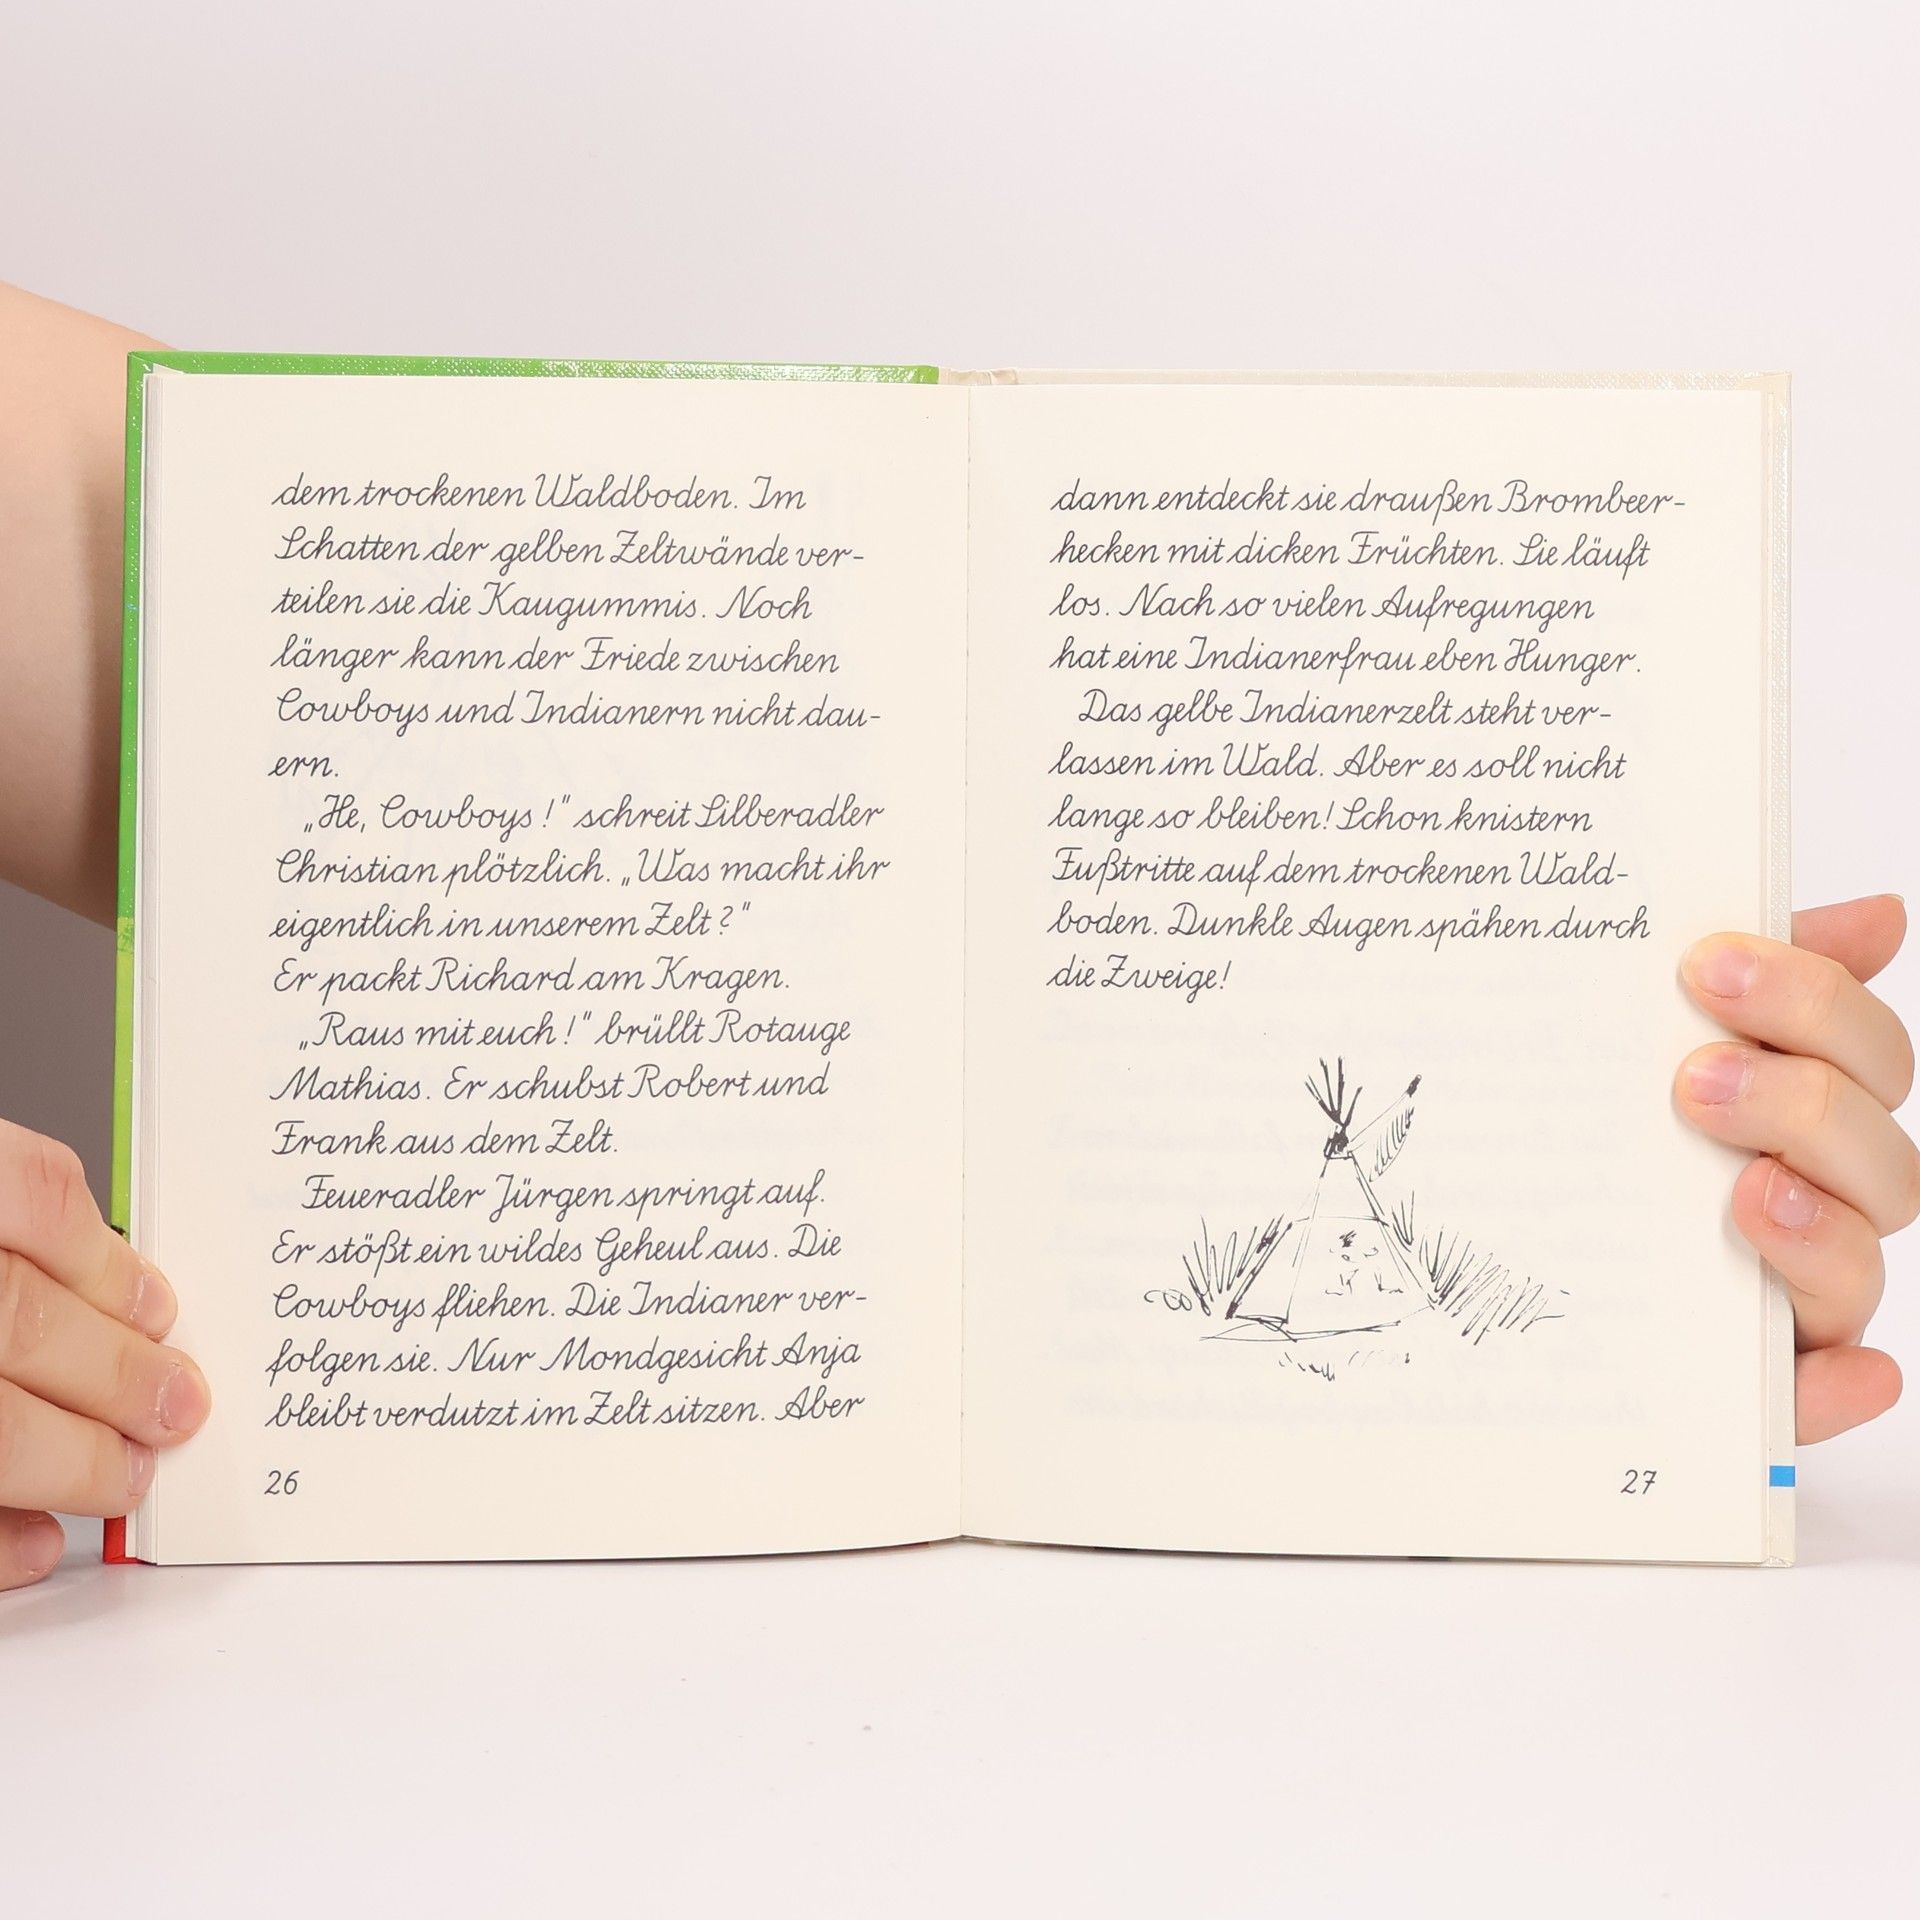 dem trockenen Waldboden. Im
Schatten der gelben Zeltwände ver-
teilen sie die Kaugummis. Noch
länger kann der Friede zwischen
Cowboys und Indianern nicht dau-
ern.
„He, Cowboys!" schreit Silberadler
Christian plötzlich. „Was macht ihr
eigentlich in unserem Zelt?"
Er packt Richard am Kragen.
„Raus mit euch!" brüllt Rotauge
Mathias. Er schubst Robert und
Frank aus dem Zelt.
Feueradler Jürgen springt auf.
Er stößt ein wildes Geheul aus. Die
Cowboys fliehen. Die Indianer ver-
folgen sie. Nur Mondgesicht Anja
bleibt verdutzt im Zelt sitzen. Aber
26
dann entdeckt sie draußen Brombeer-
hecken mit dicken Früchten. Sie läuft
los. Nach so vielen Aufregungen
hat eine Indianerfrau eben Hunger.
Das gelbe Indianerzelt steht ver-
lassen im Wald. Aber es soll nicht
lange so bleiben! Schon knistern
Fußtritte auf dem trockenen Wald-
boden. Dunkle Augen spähen durch
die Zweige!
27